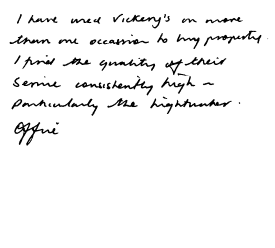 I have used Vickery's on more
than one occassion to buy property.
I find the quality of their
Service consistently high -
particularly the Lightwater
Office